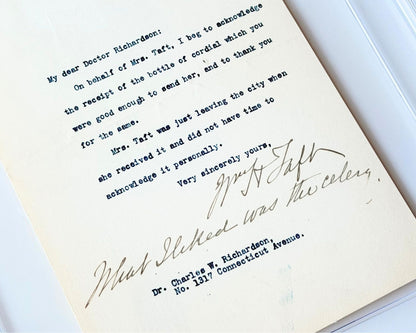 My dear Doctor Richardson:
On behalf of Mrs. Taft, I beg to acknowledge
the receipt of the bottle of cordial which you
were good enough to send her, and to thank you
for the same.
Mrs. Taft was just leaving the city when
she received it and did not have time to
acknowledge it personally.
Very sincerely yours,
Wm H Taft
What I liked was the celery.
Dr. Charles W. Richardson,
No. 1317 Connecticut Avenue.